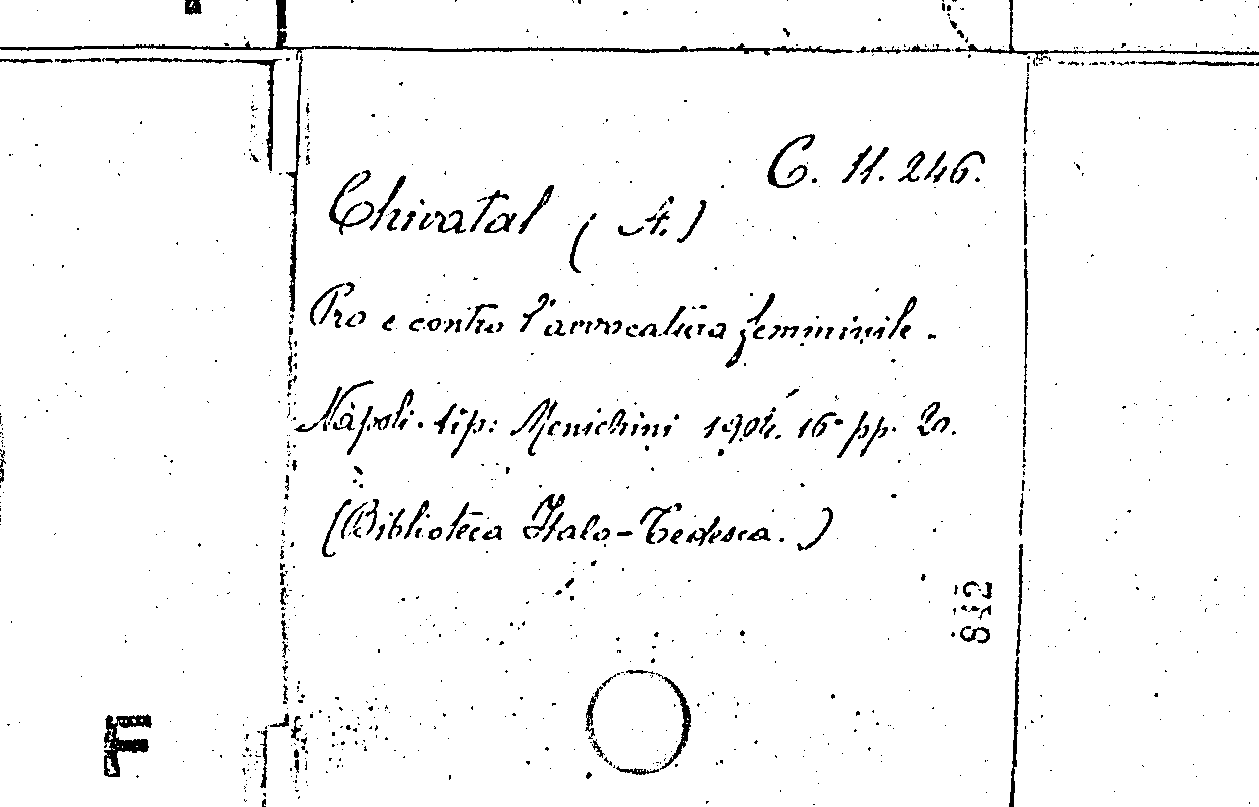 C. 11. 246.
Chivatal (A.)
Pro e contro l'avvocatura femminile.
Napoli. tip: Menichini 1904. 16º pp. 20.
(Biblioteca Italo-Tedesca.)
842
F